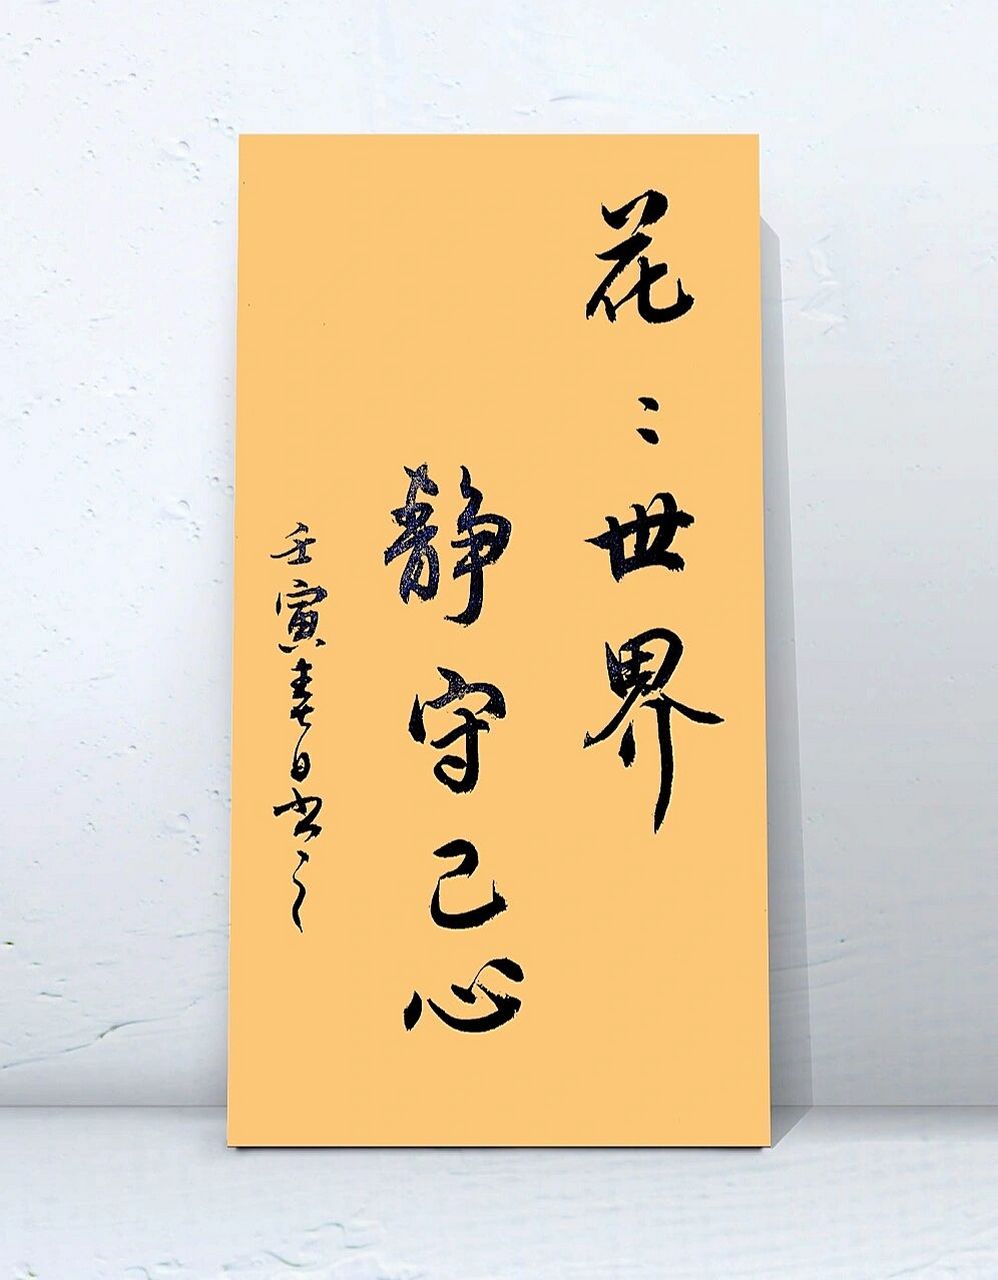 花〻世界
静守己心
壬寅春日书之